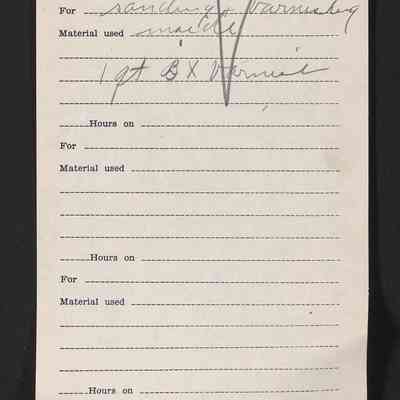 For sanding & Varnishing
Material used inside
1 qt B X Varnish
Hours on
For
Material used
Hours on
For
Material used
Hours on